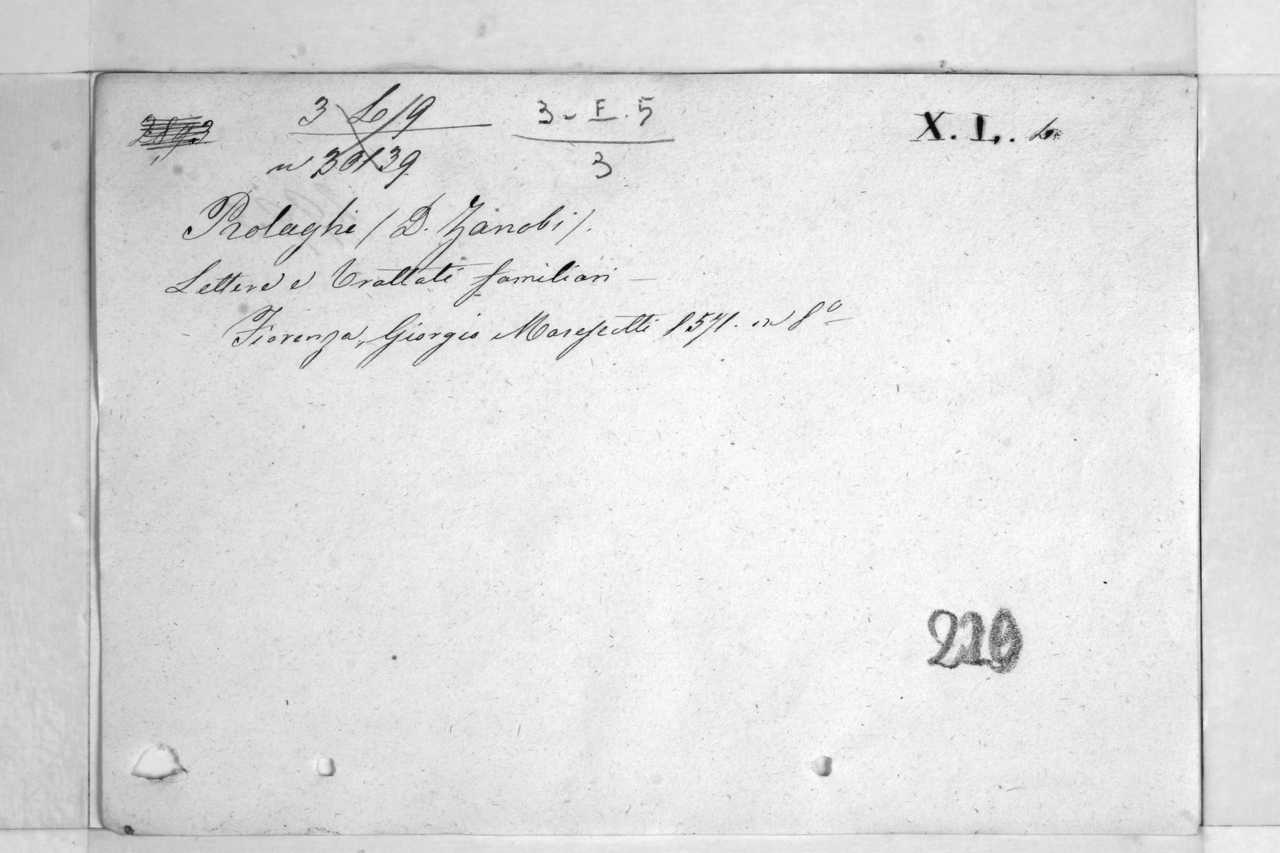 3 L/9
n 30139
3 - F. 5
3
X. I,.
Rolaghi (D. Zanobi).
Lettere e Trattati familiari —
Fiorenza, Giorgio Marescotti 1571. in 8º —